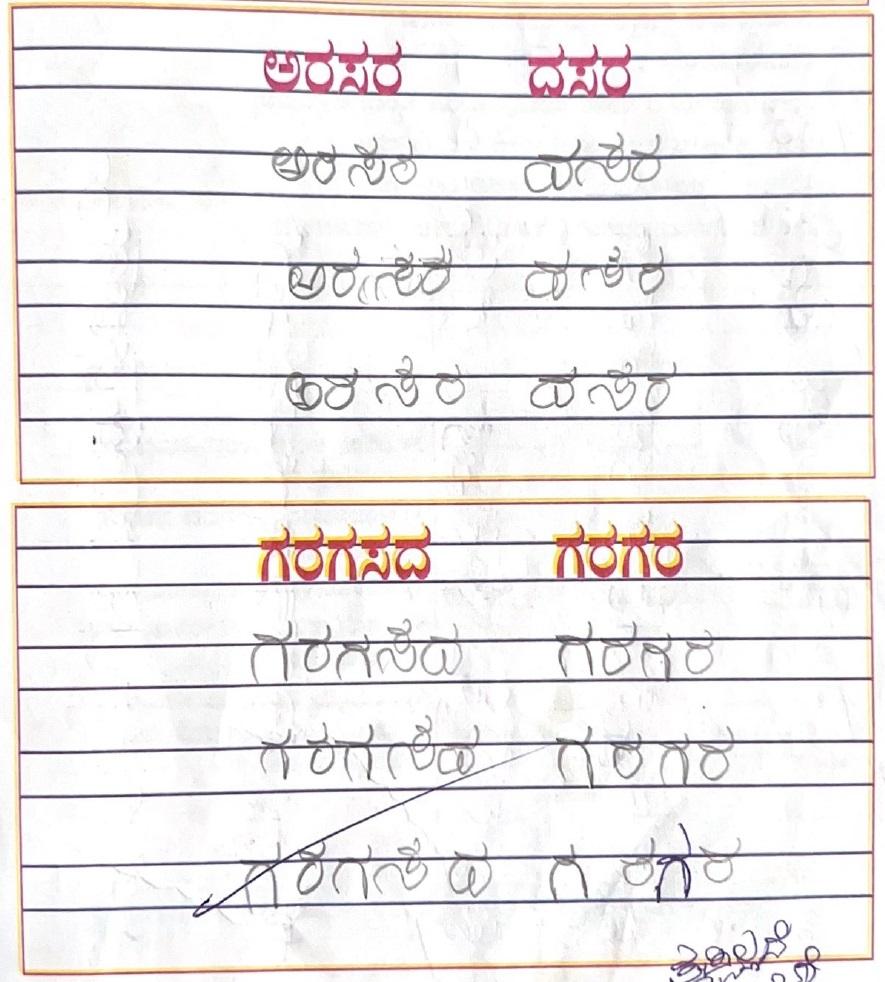 ಅರಸರ ದಸರ
ಅರಸರ ದಸರ
ಅರಸರ ದಸರ
ಅರಸರ ದಸರ
ಗರಗಸದ ಗರಗರ
ಗರಗಸದ ಗರಗರ
ಗರಗಸದ ಗರಗರ
ಗರಗಸದ ಗರಗರ